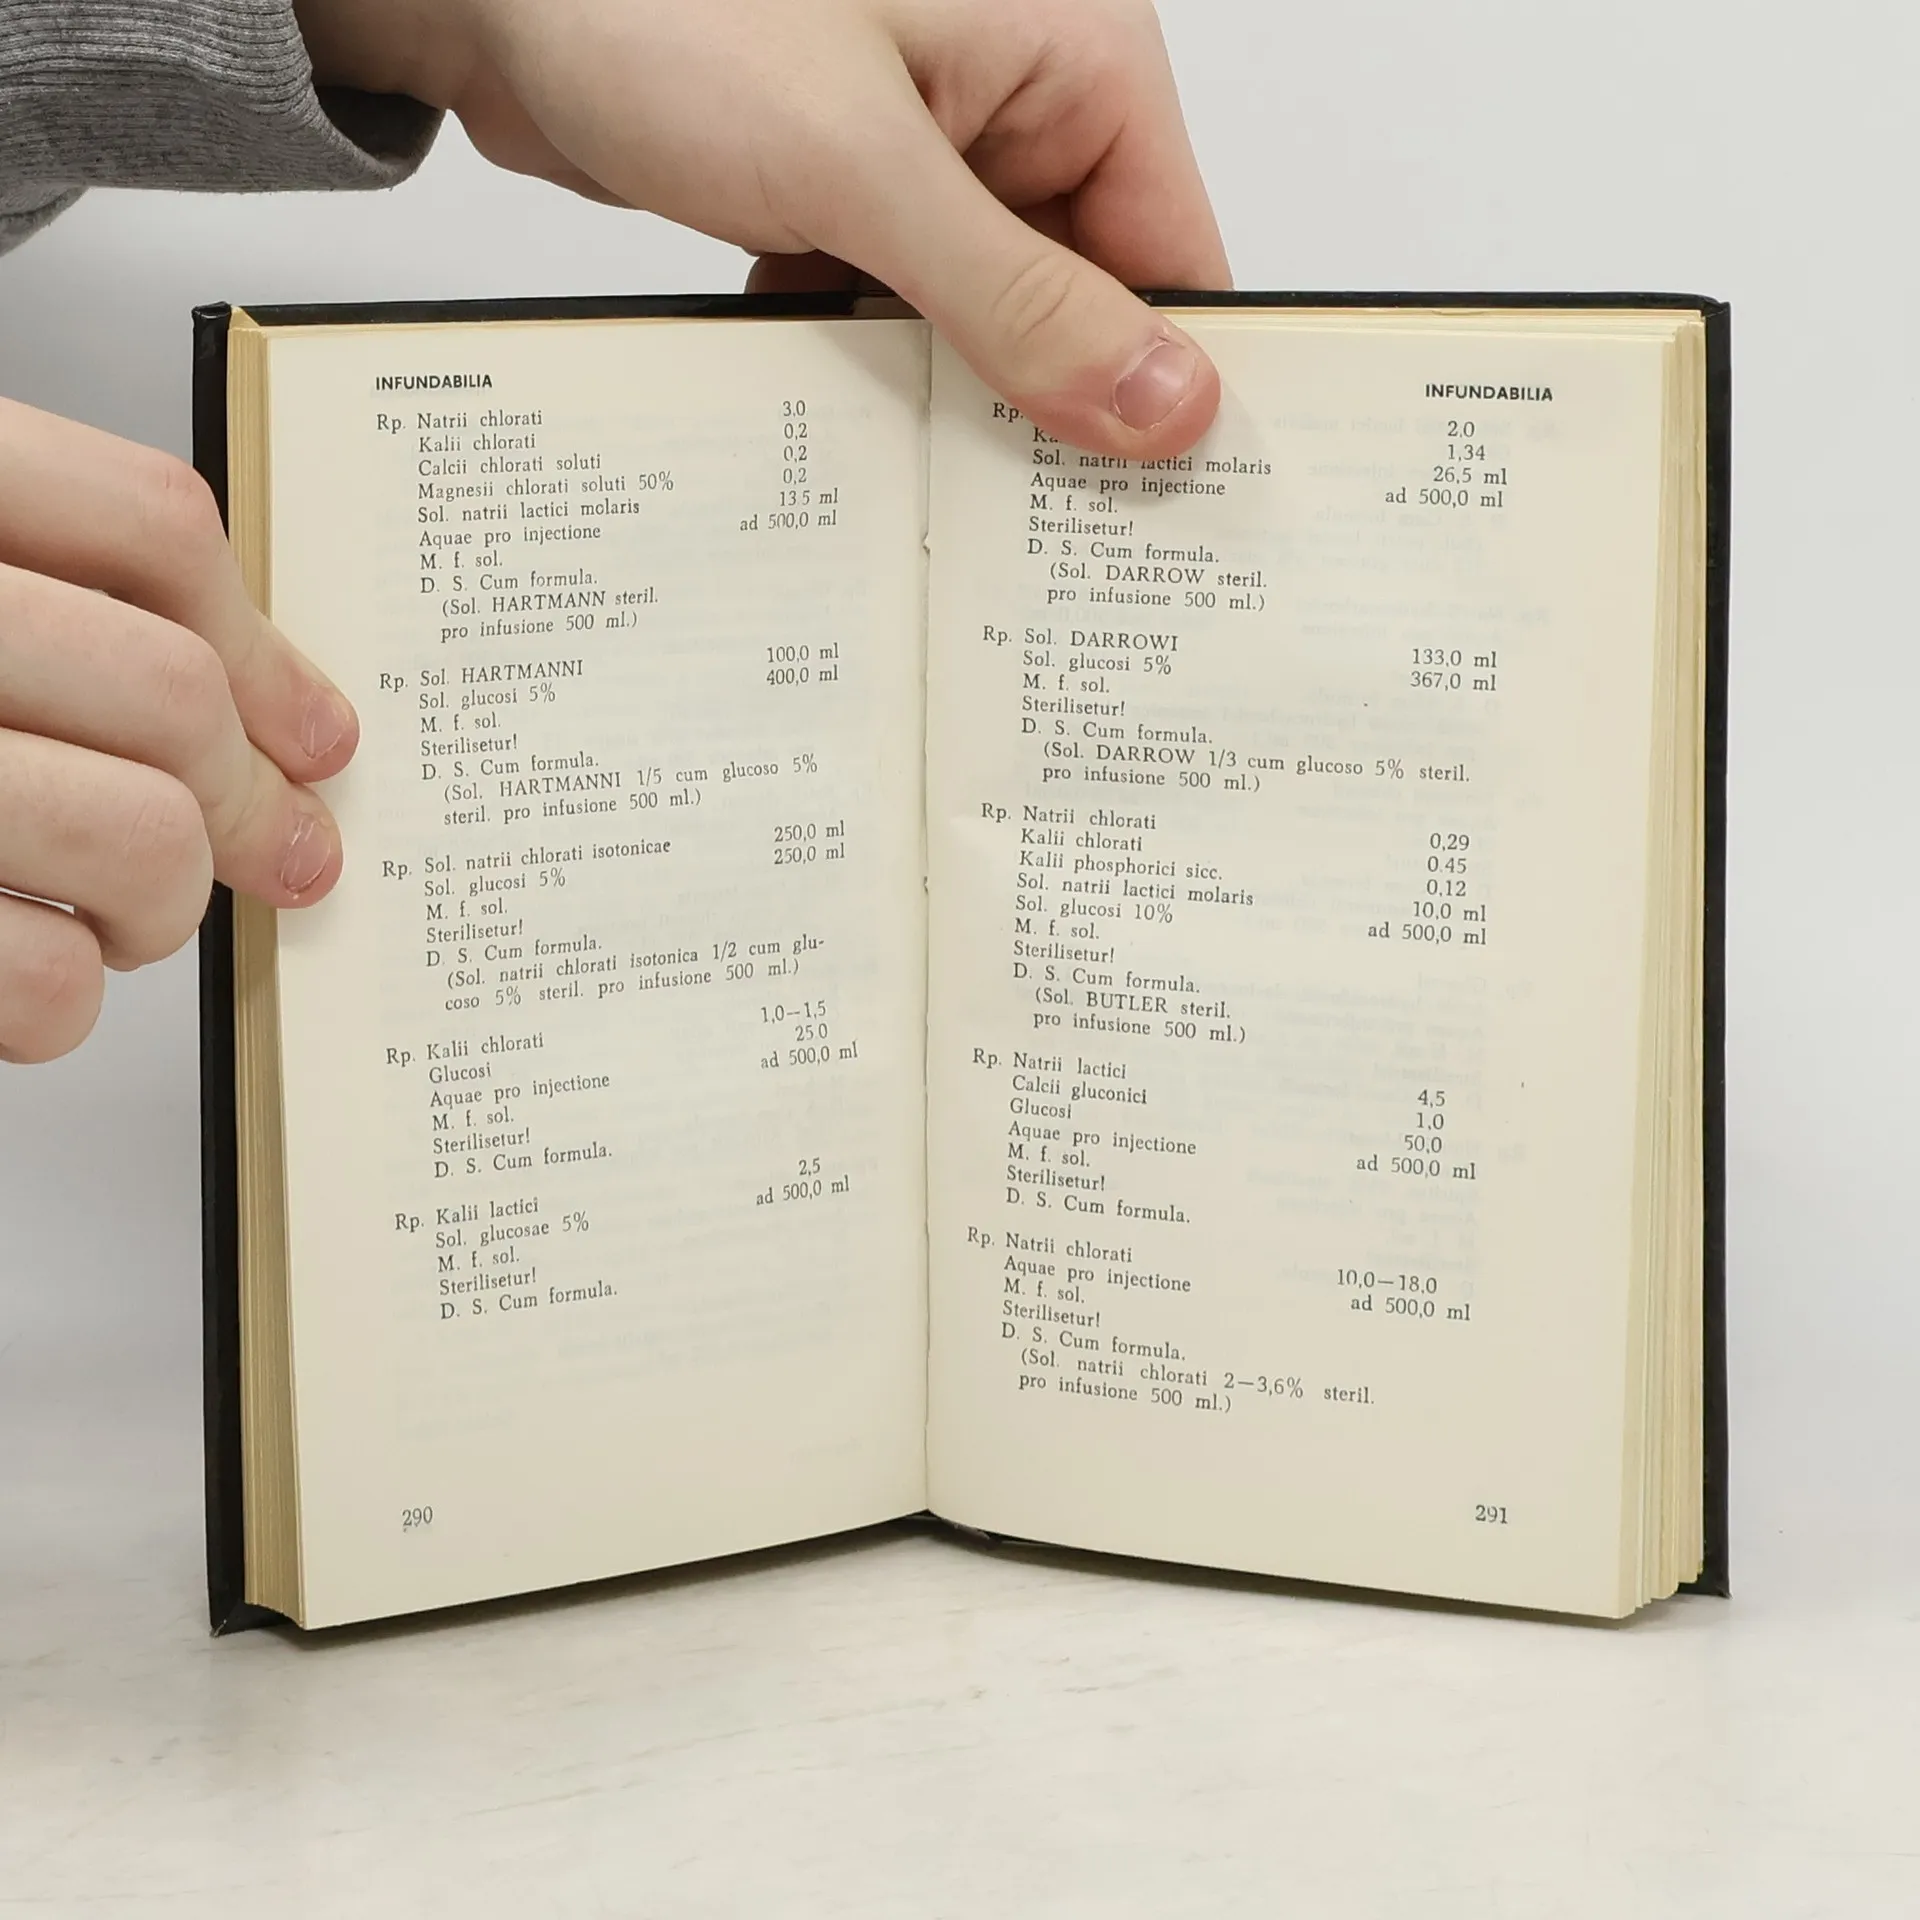 INFUNDABILIA
Rp. Natrii chlorati 3.0
Kalii chlorati 0,2
Calcii chlorati soluti 0,2
Magnesii chlorati soluti 50% 0,2
Sol. natrii lactici molaris 13 5 ml
Aquae pro injectione ad 500,0 ml
M. f. sol.
D. S. Cum formula.
(Sol. HARTMANN steril.
pro infusione 500 ml.)
Rp. Sol. HARTMANNI 100,0 ml
Sol. glucosi 5% 400,0 ml
M. f. sol.
Sterilisetur!
D. S. Cum formula.
(Sol. HARTMANNI 1/5 cum glucoso 5%
steril. pro infusione 500 ml.)
Rp. Sol. natrii chlorati isotonicae 250,0 ml
Sol. glucosi 5% 250,0 ml
M. f. sol.
Sterilisetur!
D. S. Cum formula.
(Sol. natrii chlorati isotonica 1/2 cum glu-
coso 5% steril. pro infusione 500 ml.)
Rp. Kalii chlorati 1,0—1,5
Glucosi 25 0
Aquae pro injectione ad 500,0 ml
M. f. sol.
Sterilisetur!
D. S. Cum formula.
Rp. Kalii lactici 2,5
Sol. glucosae 5% ad 500,0 ml
M. f. sol.
Sterilisetur!
D. S. Cum formula.
290
INFUNDABILIA
Rp. 2,0
1,34
Sol. natrii lactici molaris 26,5 ml
Aquae pro injectione ad 500,0 ml
M. f. sol.
Sterilisetur!
D. S. Cum formula.
(Sol. DARROW steril.
pro infusione 500 ml.)
Rp. Sol. DARROWI 133,0 ml
Sol. glucosi 5% 367,0 ml
M. f. sol.
Sterilisetur!
D. S. Cum formula.
(Sol. DARROW 1/3 cum glucoso 5% steril.
pro infusione 500 ml.)
Rp. Natrii chlorati 0,29
Kalii chlorati 0.45
Kalii phosphorici sicc. 0,12
Sol. natrii lactici molaris 10,0 ml
Sol. glucosi 10% ad 500,0 ml
M. f. sol.
Sterilisetur!
D. S. Cum formula.
(Sol. BUTLER steril.
pro infusione 500 ml.)
Rp. Natrii lactici 4,5
Calcii gluconici 1,0
Glucosi 50,0
Aquae pro injectione ad 500,0 ml
M. f. sol.
Sterilisetur!
D. S. Cum formula.
Rp. Natrii chlorati 10,0—18,0
Aquae pro injectione ad 500,0 ml
M. f. sol.
Sterilisetur!
D. S. Cum formula.
(Sol. natrii chlorati 2—3,6% steril.
pro infusione 500 ml.)
291